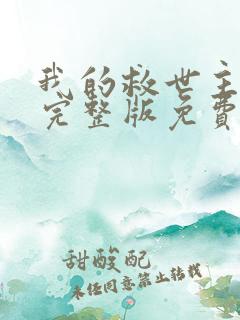 我的救世主
完整版免费
甜酸配
未经同意禁止转载